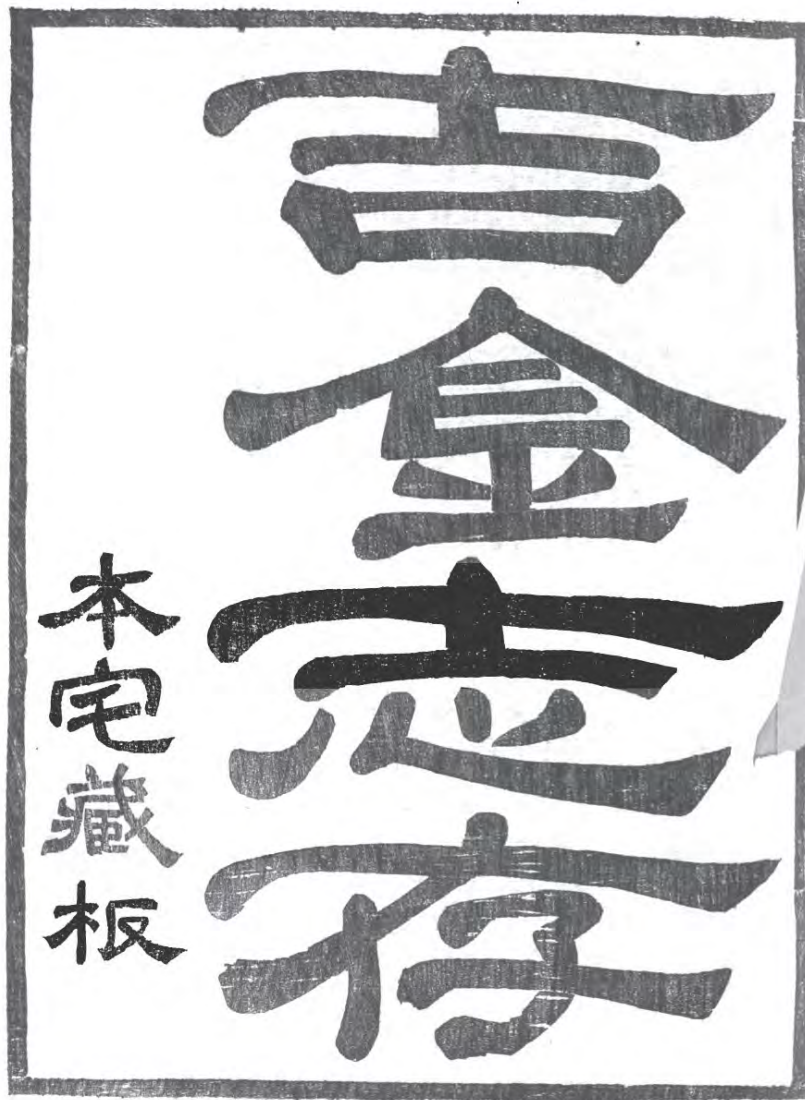 吉金志存
本宅藏板